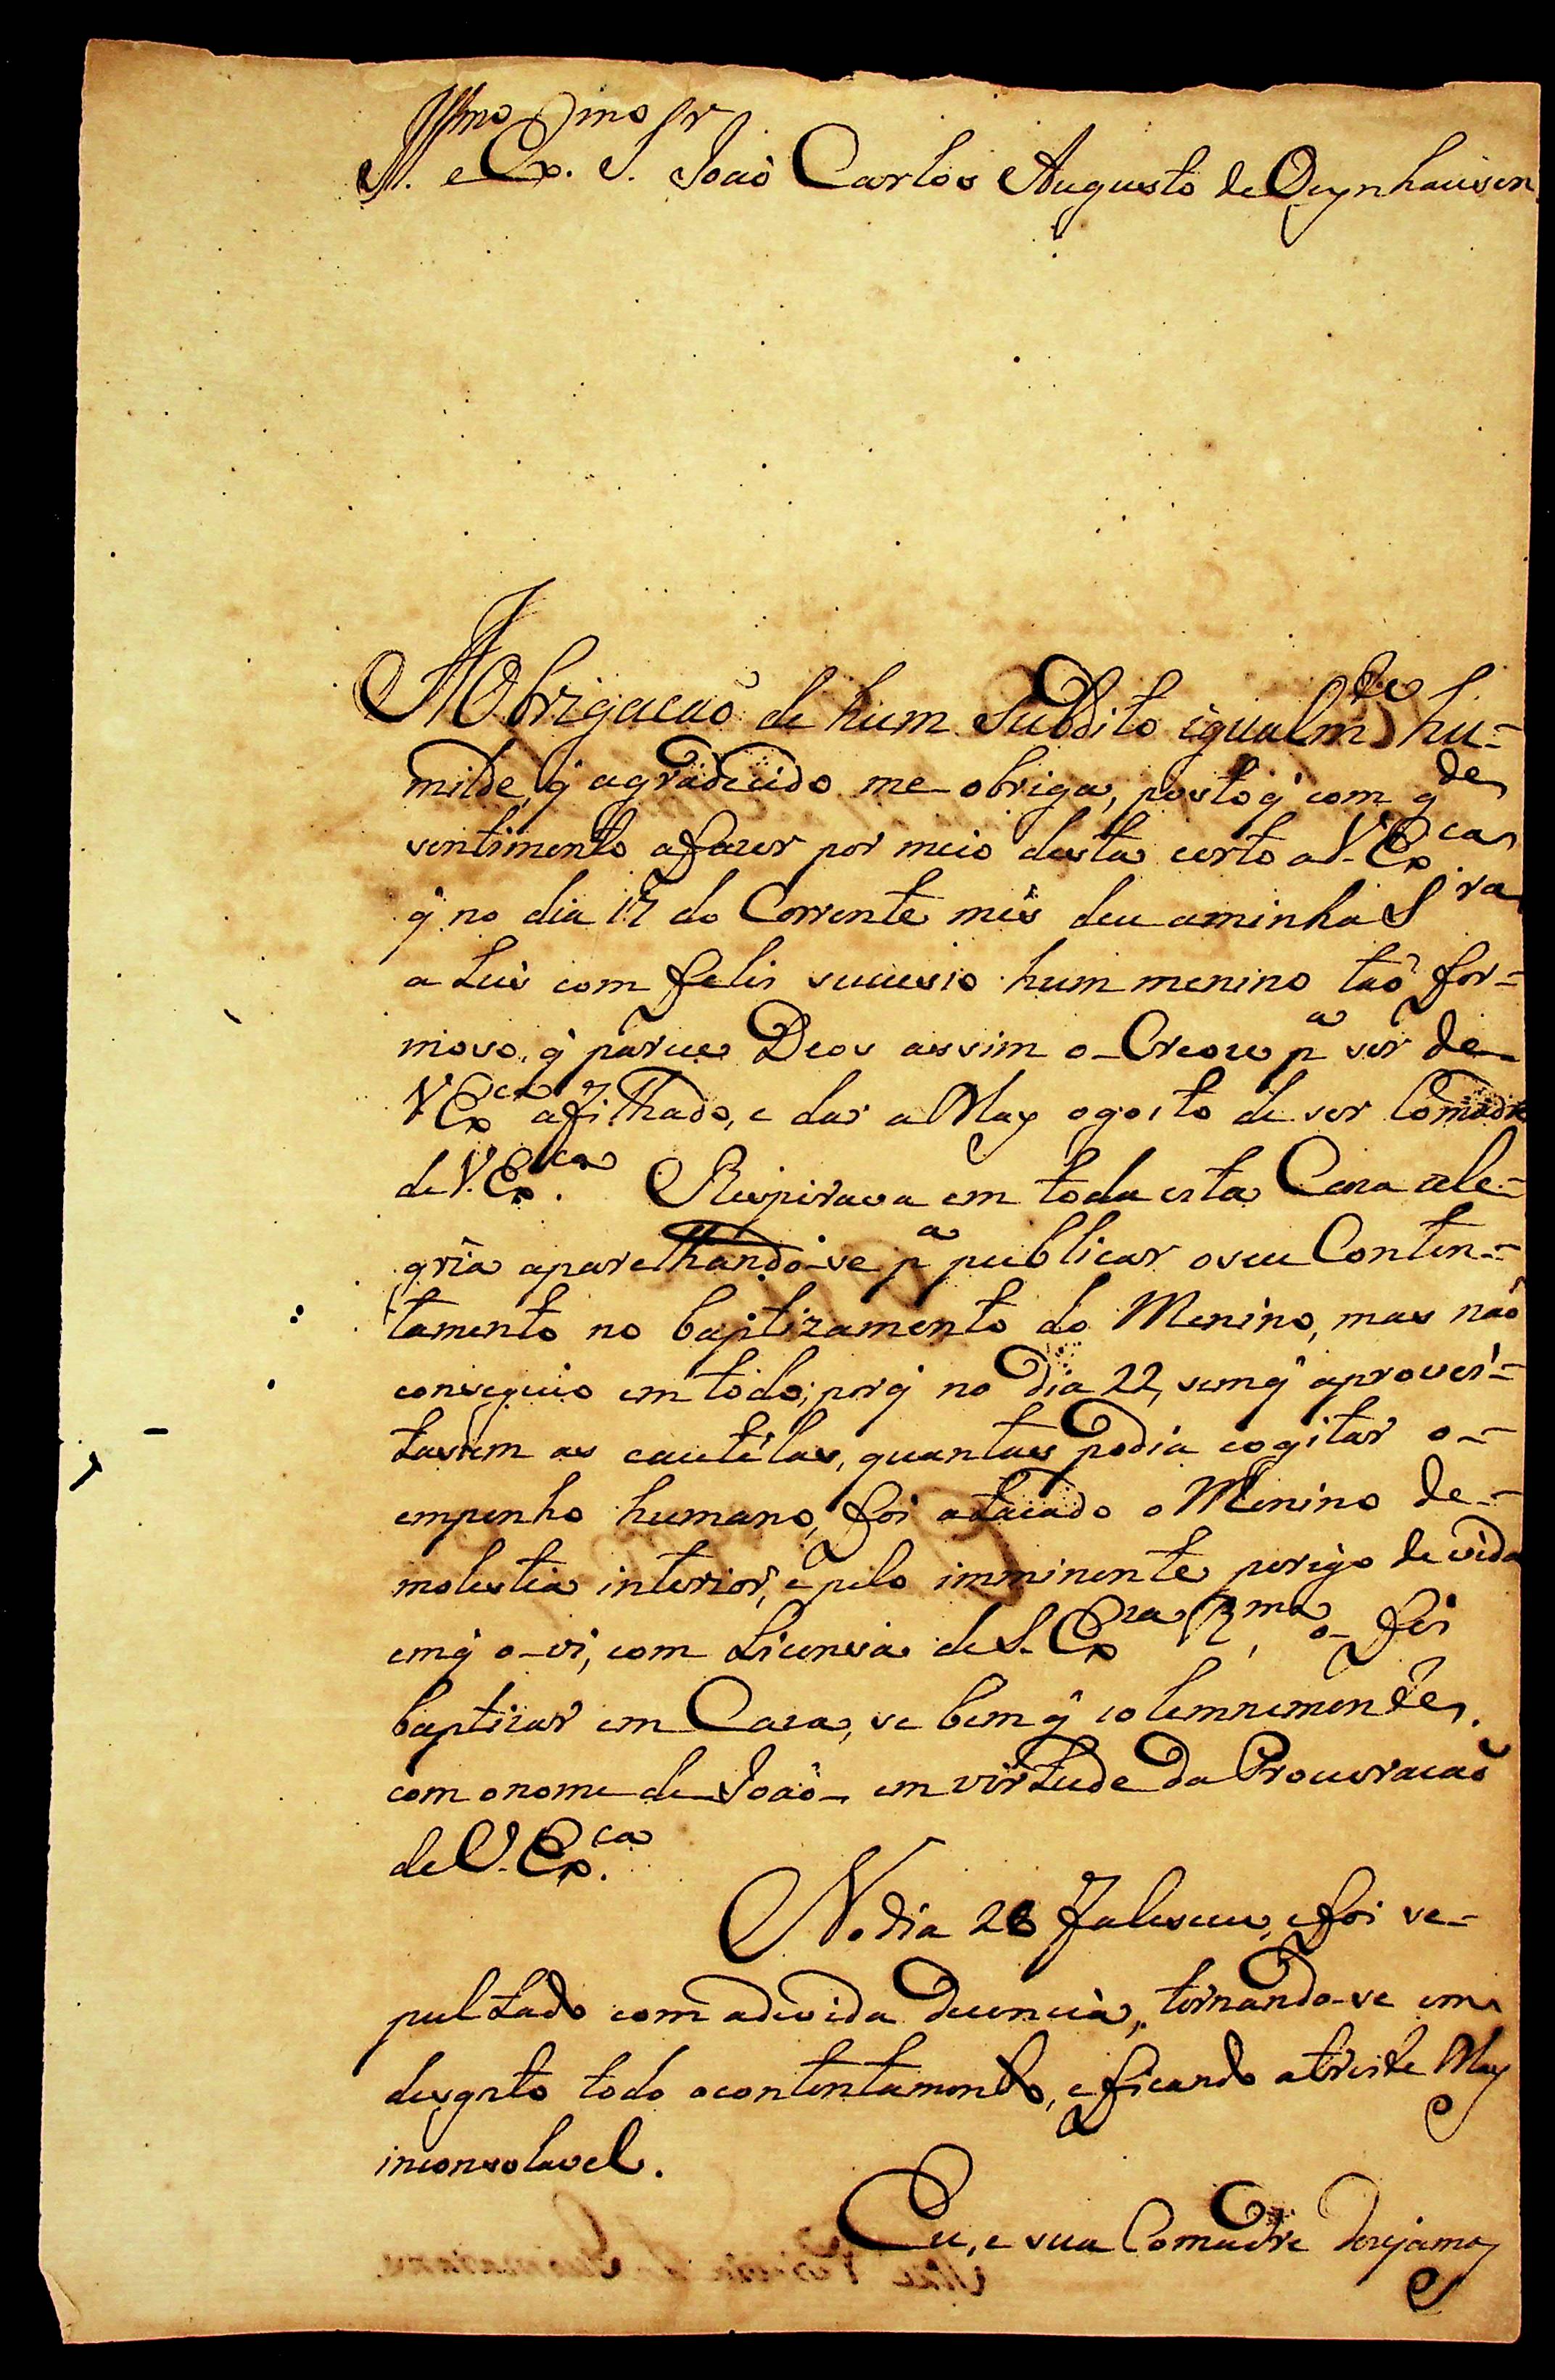 Illmo e Exmo Sr João Carlos Augusto de Oeynhausen
A Obrigacaõ de hum Subdito igualmte hu-
milde, q̃ agradecido me obriga, posto q̃ com gde
sentimento afazer por meio desta certo a V. Exca
q̃ no dia 17 do Corrente mês deu aminha Sra
a Luz com felis sucesso hum menino taõ for-
moso, q̃ parece Deos assim o Creou pa ser de
V Exca afilhado, e dar a May ogosto de ser Comadre
de V. Exca. Respirava em toda esta Caza ale-
gria aparelhando-se pa publicar oseu Conten-
tamento no baptizamento do Menino, mas não
conseguio em todo; porq̃ no dia 22, semq̃ aprovei-
tassem as cautélas, quantas podia cogitar o
empenho humano, foi atacado o Menino de
molestia interior, e pelo imminente perigo de vida
emq̃ o vi, com Licensa de S. Exca Rma, o fis
baptizar em Caza, se bem q̃ solemnemente,
com onome de João em virtude da Procuracaõ
de V. Exca.
No dia 28 faleceu, efoi se-
pultado com adevida decencia, tornando-se em
desgosto todo ocontentamento, eficando atriste May
inconsolavel.
Eu, e sua Comadre dezejamos